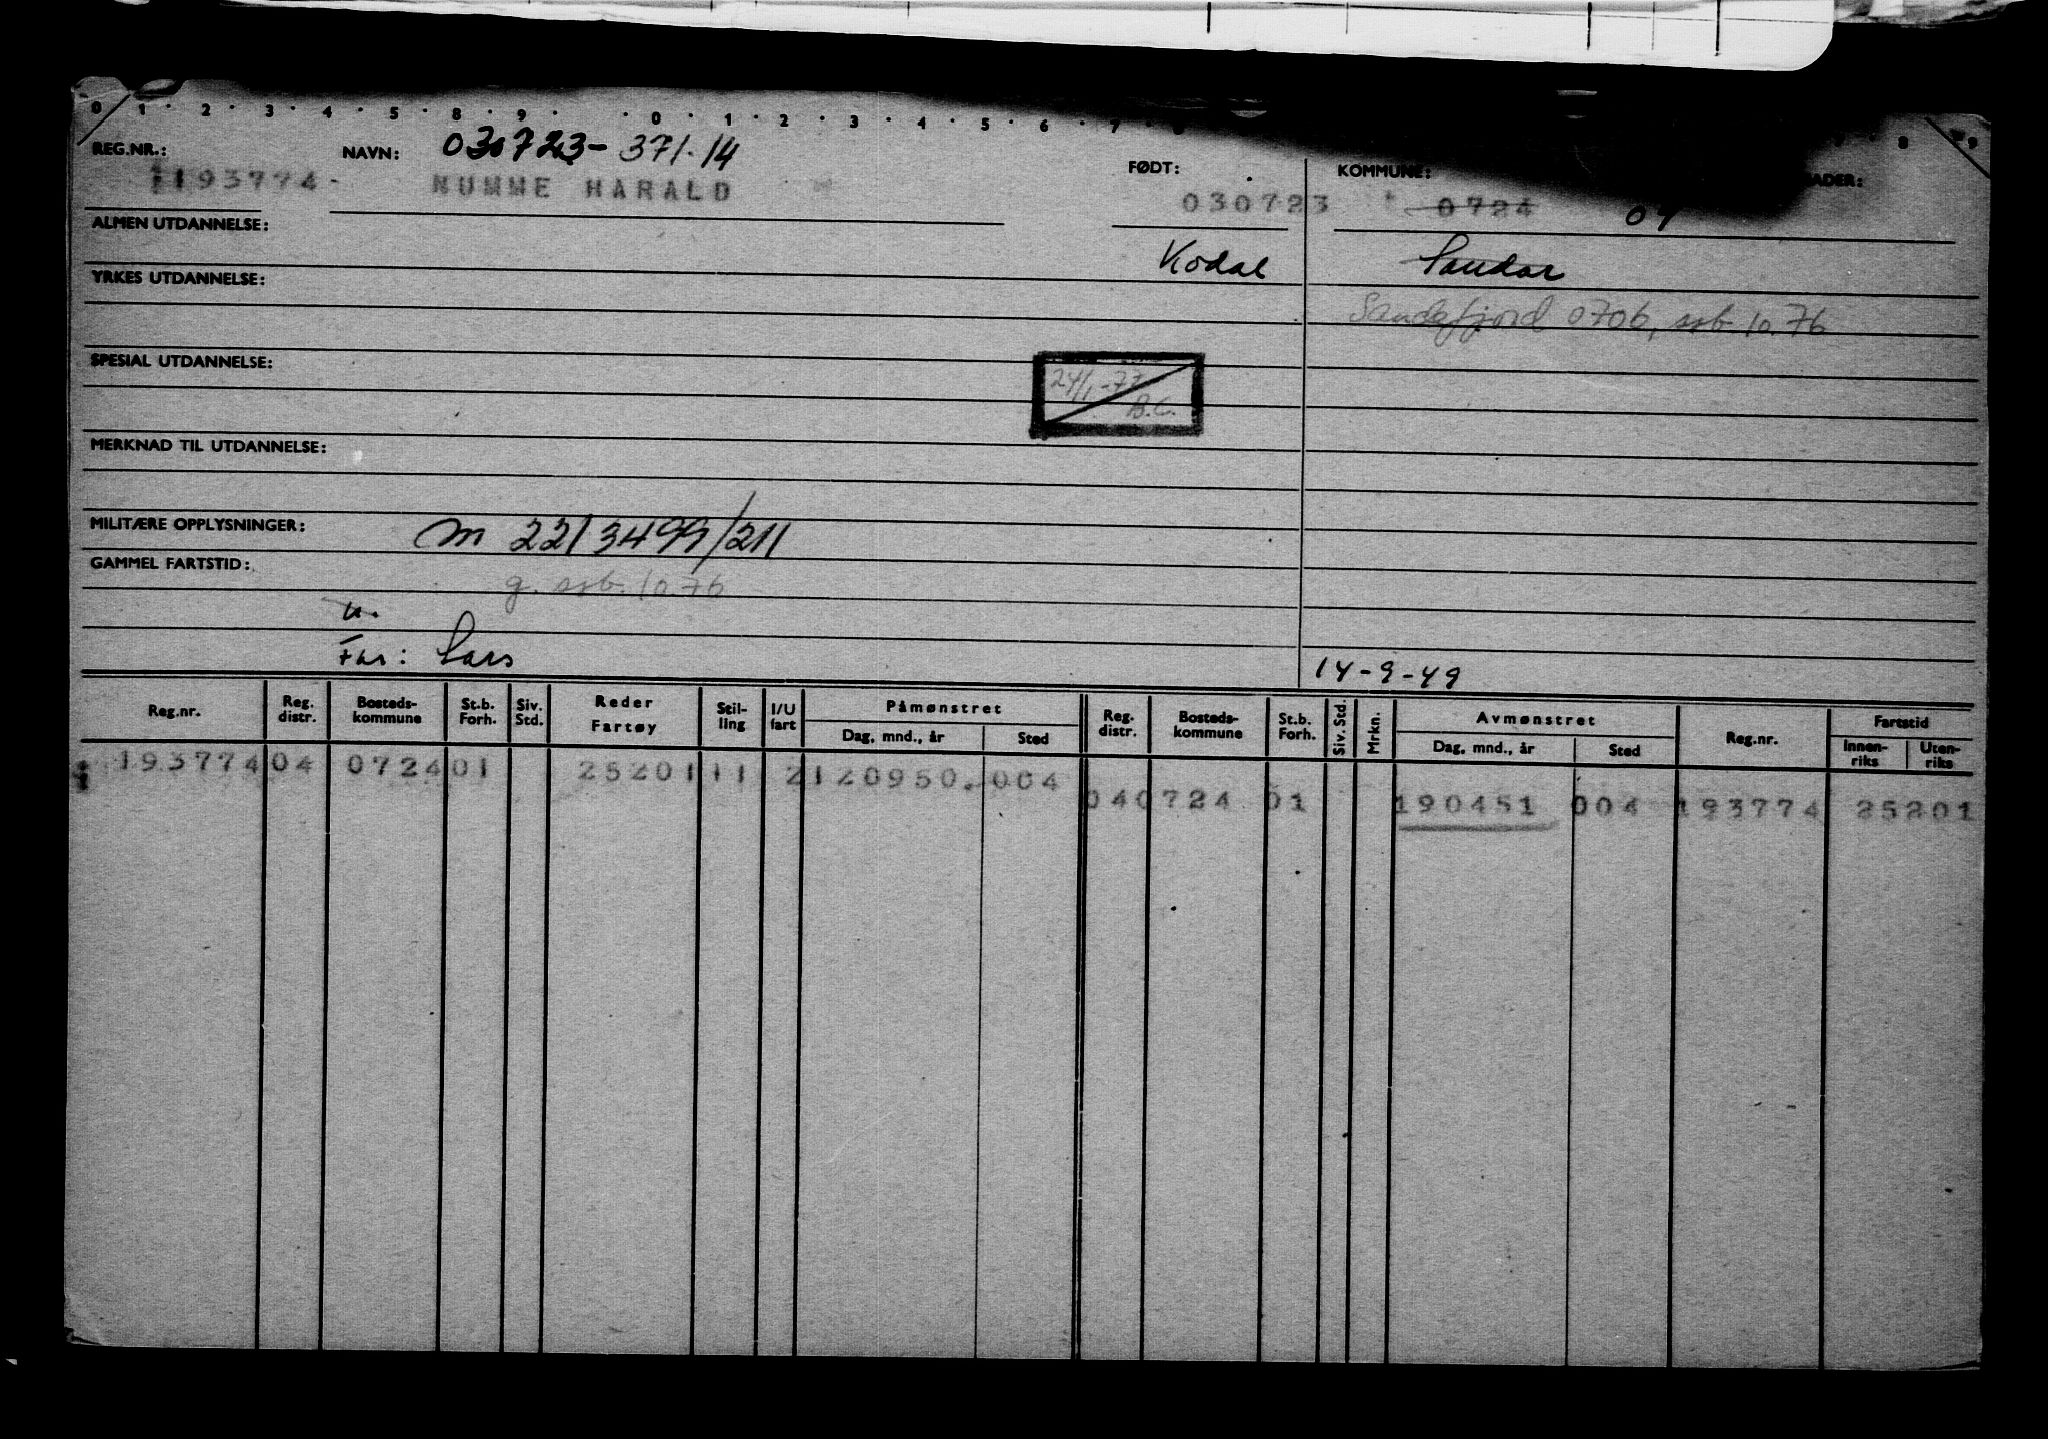 0 1 · 2 · 3 · 4 · 5 · 8 · 9 · · 0 · 1 · 2 · 3 · 4 · 5 · 6 · 7 · 8 9
REG.NR.: NAVN: 030723- 371.14 FØDT: KOMMUNE: ADER:
1193774- NUMME HARALD 030723 0724 04
ALMEN UTDANNELSE:
Kodal Sandar
YRKES UTDANNELSE:
Sandefjord 0706, ssb 10.76
SPESIAL UTDANNELSE:
24/1-77
B.C.
MERKNAD TIL UTDANNELSE:
MILITÆRE OPPLYSNINGER: m 2213499/211
GAMMEL FARTSTID:
g. ssb. 10.76
u.
Far: Lars
14-9-49
Reg.nr. Reg. distr. Bosteds-kommune St.b. Forh. Siv. Std. Reder Fartøy Stil-ling I/U fart Påmønstret Dag, mnd., år Sted Reg. distr. Bosteds-kommune St.b. Forh. Siv. Std. Mrkn. Avmønstret Dag, mnd., år Sted Reg.nr. Fartstid Innen-riks Uten-riks
193774 04 0724 01 25201 11 2 120950. 004
04 0724 01 190451 004 193774 25201